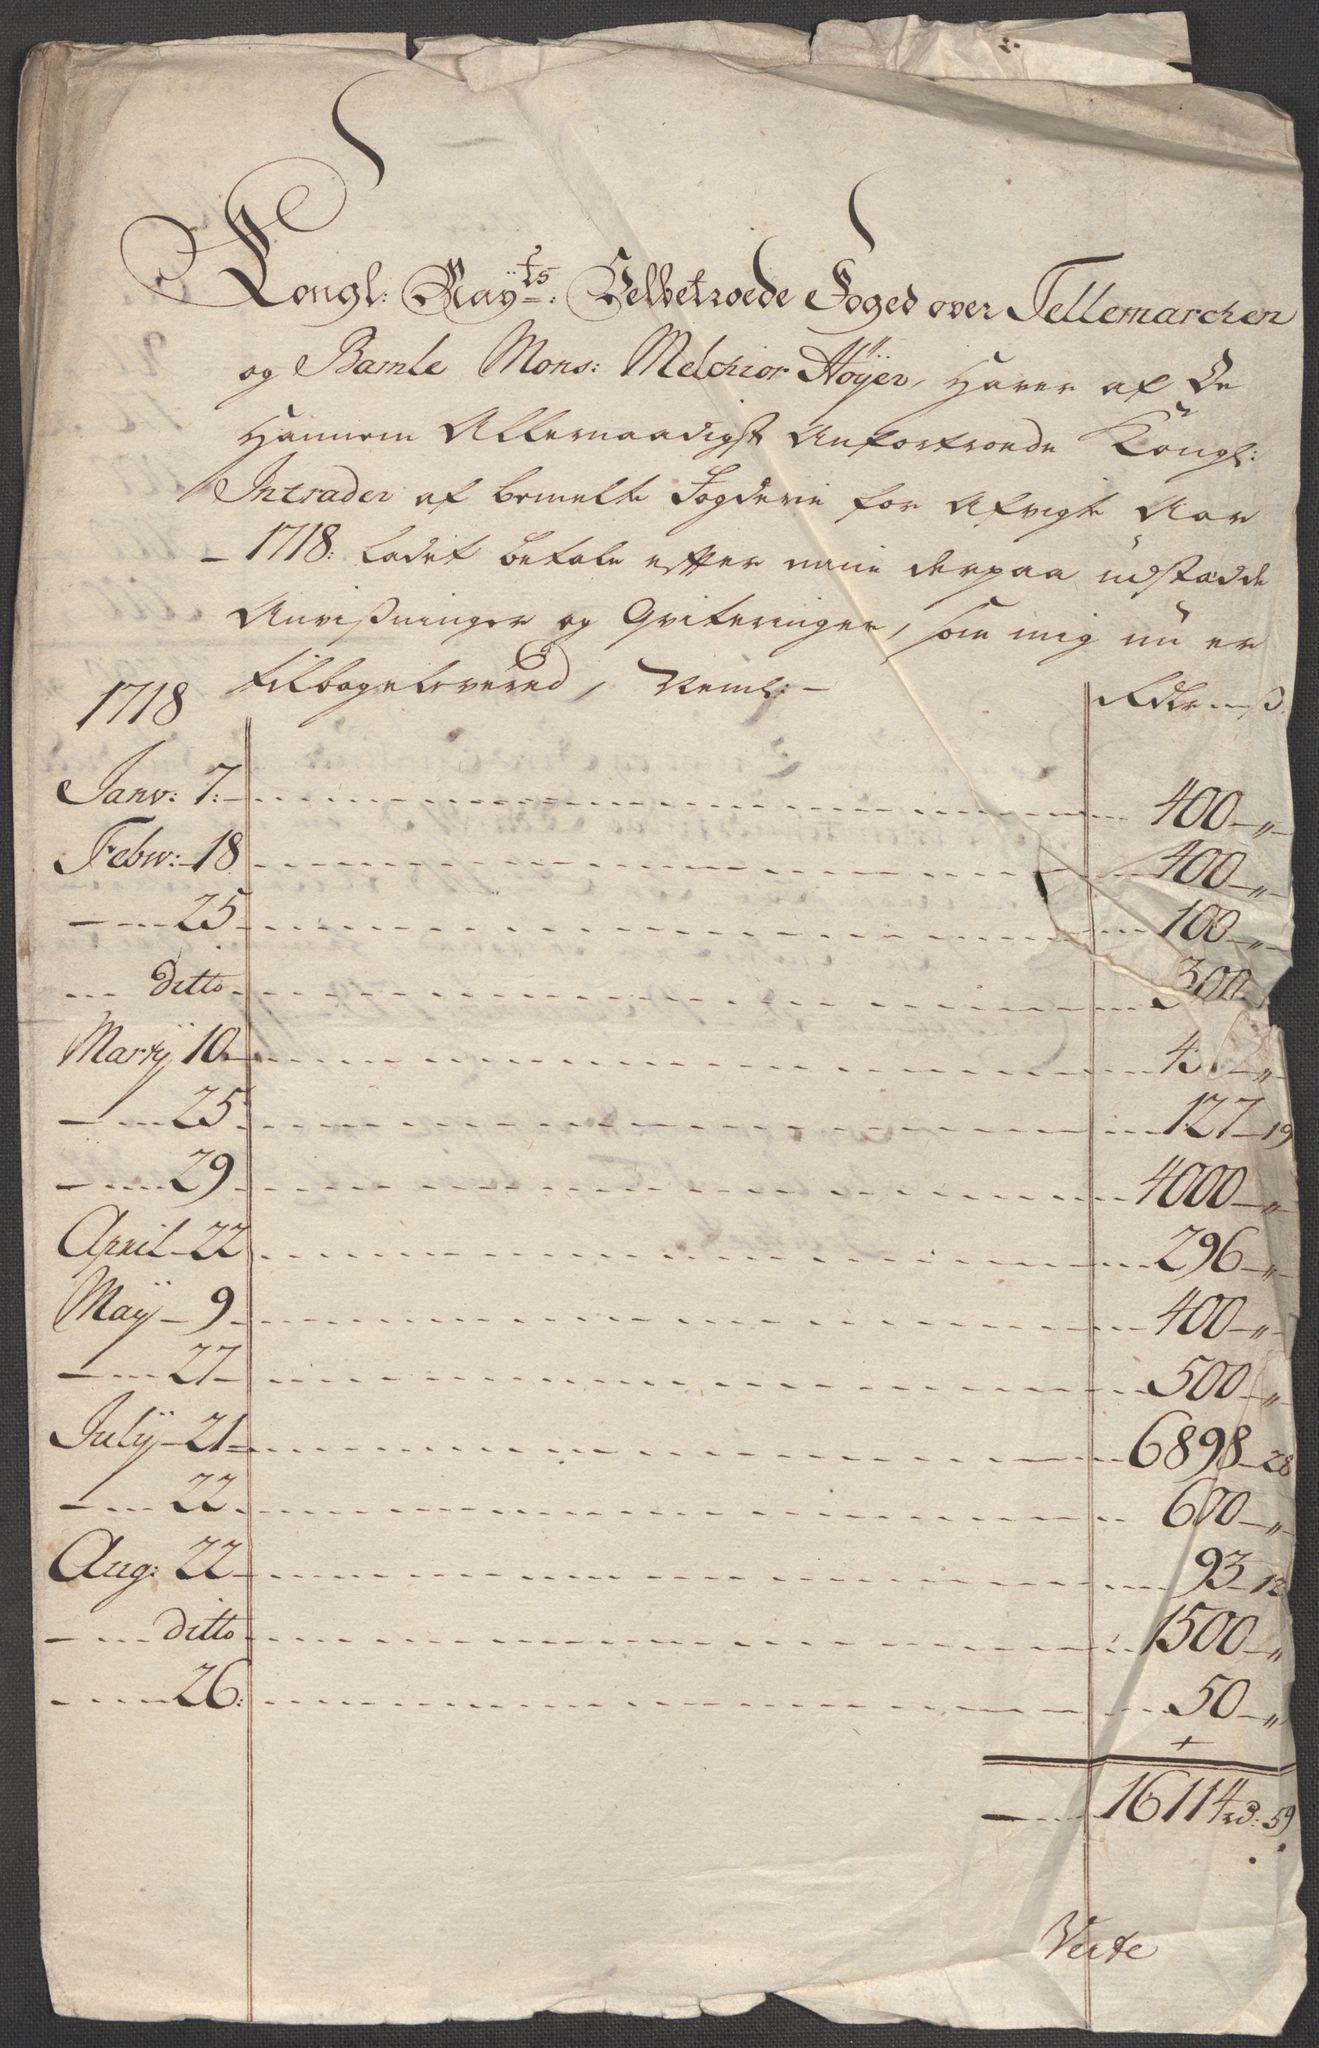 Kongl: May:ts: Velbetroede Foged over Tellemarchen
og Bamle Mons: Melchior Höÿer, Haver af De
Hannem Allernaadigst Anfortroede Kongl:
Intrader af bemelte Fogderie for Afvigte Aar
1718: ladet betale efter mine derpaa udstædde
Anvißninger og Qviteringer, som mig nu er
tilbagelevered, Neml:
1718 Rdlr ß
Janv: 7: 400 "
Febru: 18 400 "
25 100 "
ditto 300
Martÿ 10 "
25 127 19
29 4000 "
April 22 296 "
Maÿ 9 400 "
27 500 "
Julÿ 21 6898 28
22 600 "
Aug: 22 93 12
ditto 1500 "
26: 50 "
16114 rd: 59
Verte